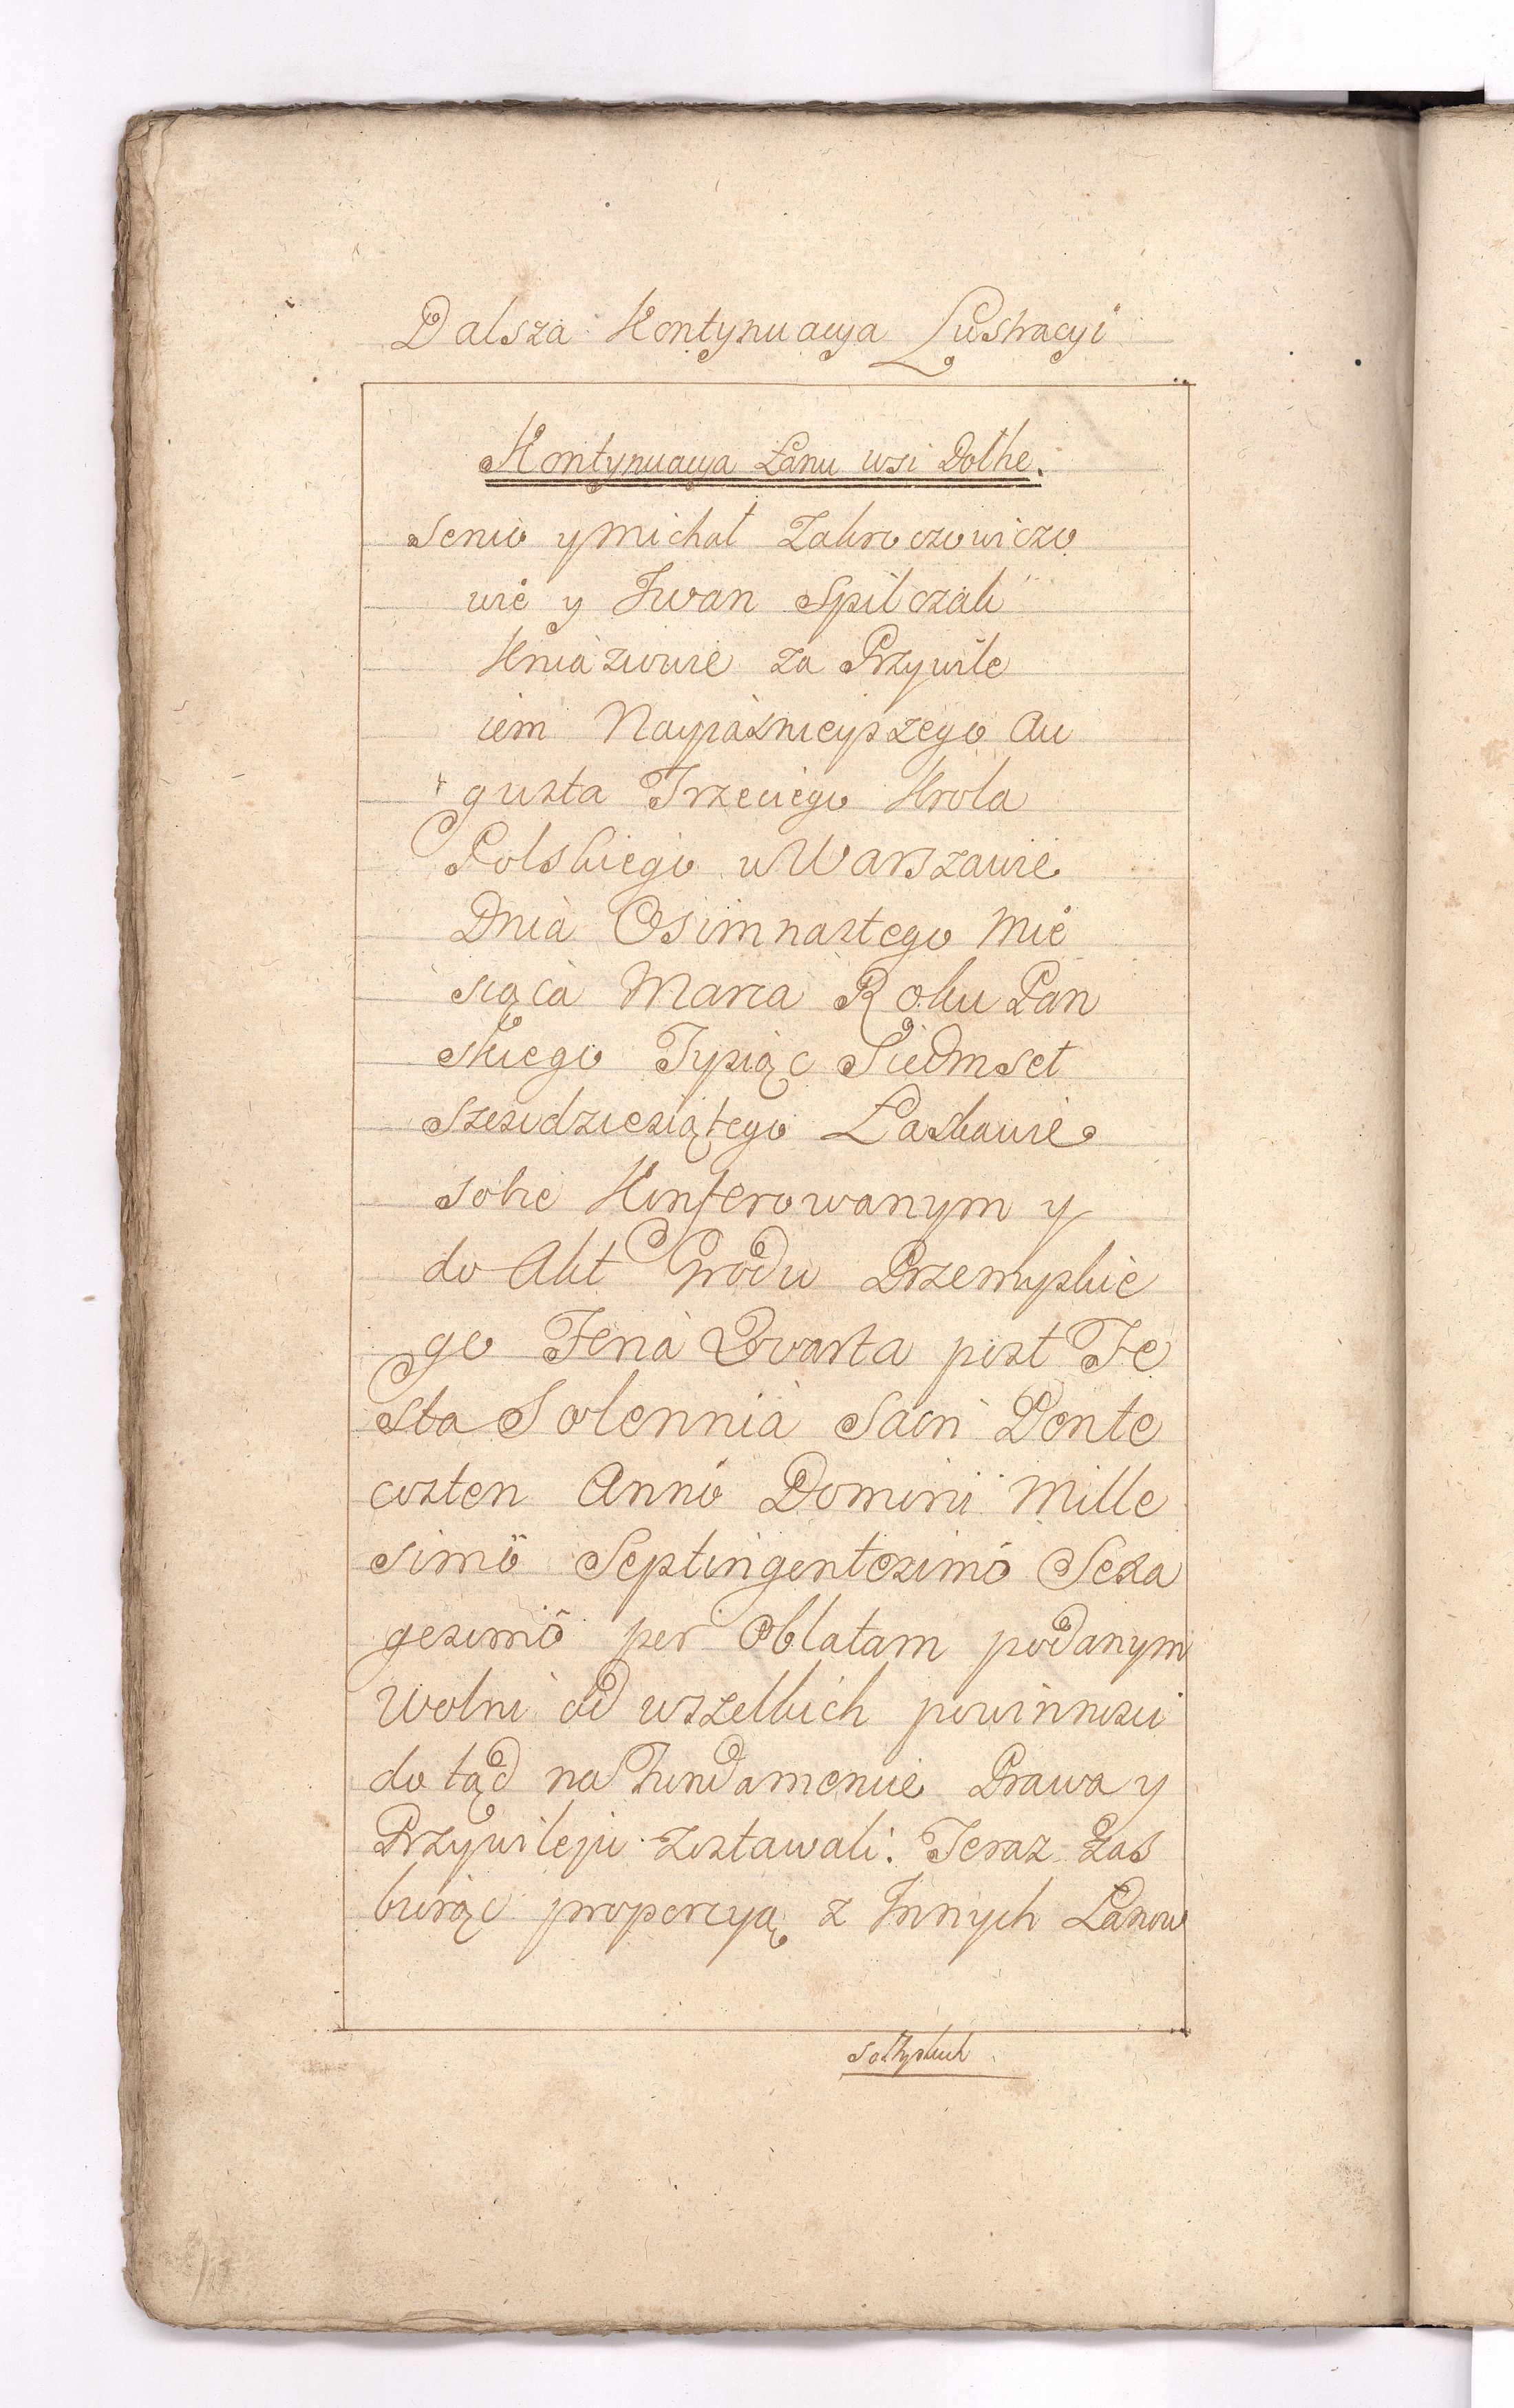 Dalsza Kontynuacya Lustracyi
Kontynuacya Łanu wsi Dołhe.
Senio y Michał Zabroczowiczo
wie y Iwan Spilczak
Kniaziowie za Przywile
iem Nayiaśnieyszego Au
gusta Trzeciego Krola
Polskiego w Warszawie
Dnia Osimnastego Mie
siąca Marca Roku Pan
skiego Tysiąc Siedmset
Szesidziesiątego Łaskawie
sobie Konferowanym y
do Akt Grodu Przemyskie
go Feria Qvarta post Fe
sta Solennia Sacri Pente
costen Anno Domini Mille
simo Septingentesimo Sexa
gesimo per Oblatam podanym
Wolni od wszelkich powinnosci
do tąd na Fundamencie Prawa y
Przywileju zostawali. Teraz zas
biorąc proporcyą z Innych Łanow
Sołtyskich